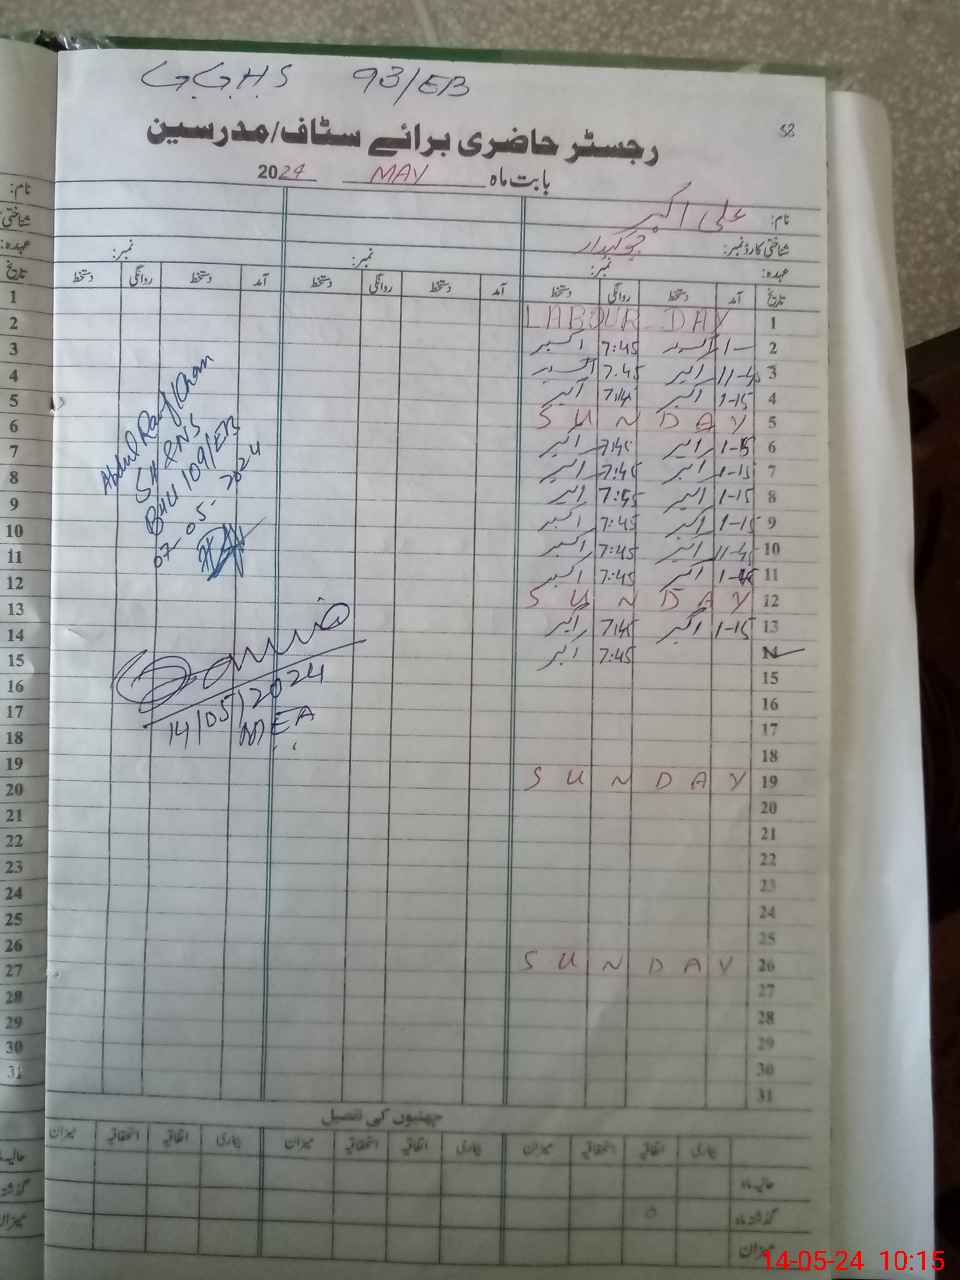 G.G.H.S 93/EB
58
رجسٹر حاضری برائے سٹاف/مدرسین
بابت ماہ MAY 2024
نام: علی اکبر
شناختی کارڈ نمبر: چوکیدار
عہدہ: نمبر: نمبر: نمبر:
تاریخ آمد دستخط روانگی دستخط آمد دستخط روانگی دستخط آمد دستخط روانگی دستخط
1 LABOUR DAY
2 7:45 اکبر
3 11-45 اکبر 7:45
4 1-15 اکبر 7:45 اکبر
5 SUNDAY
6 1-15 اکبر 7:45 اکبر
7 1-15 اکبر 7:45 اکبر
8 1-15 اکبر 7:45 اکبر
9 1-15 اکبر 7:45 اکبر
10 11-45 اکبر 7:45 اکبر
11 اکبر 7:45 اکبر
12 SUNDAY
13 1-15 اکبر 7:45 اکبر
7:45 اکبر
15
16
17
18
19 SUNDAY
20
21
22
23
24
25
26 SUNDAY
27
28
29
30
31
Abdul Rauf Khan
109/EB
07-05-2024
14/05/2024
MEA
چھٹیوں کی تفصیل
بیماری اتفاقیہ استحقاقیہ میزان بیماری اتفاقیہ استحقاقیہ میزان بیماری اتفاقیہ استحقاقیہ میزان
حالیہ ماہ
گذشتہ ماہ
میزان
نام:
شناختی
عہدہ:
تاریخ
1
2
3
4
5
6
7
8
9
10
11
12
13
14
15
16
17
18
19
20
21
22
23
24
25
26
27
28
29
30
31
میزان
14-05-24 10:15